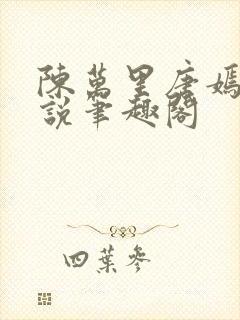 陳萬里唐嫣
說筆趣閣
四葉參